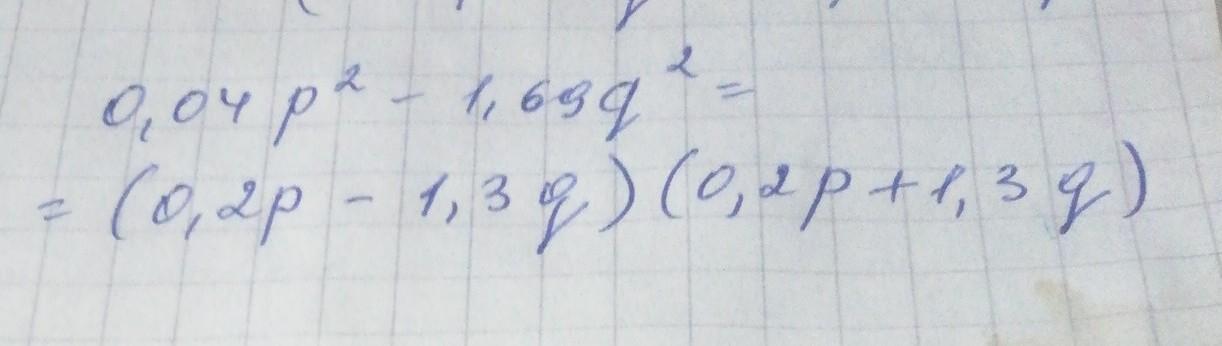 0,04p² - 1,69q² =
= (0,2p - 1,3q)(0,2p + 1,3q)